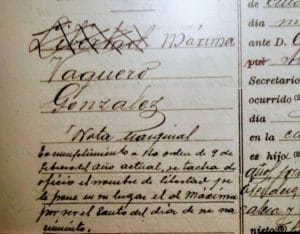 Libertad Máxima
Vaquero
Gonzalez
Nota marginal
En cumplimiento a la orden de 9 de
febrero del año actual, se tacha de
oficio el nombre de Libertad y se
le pone en su lugar el de Máxima
por ser el Santo del dia de su na
cimiento.
día
ante D.
Secretario
ocurrido
día
en la ca
es hijo
nieto